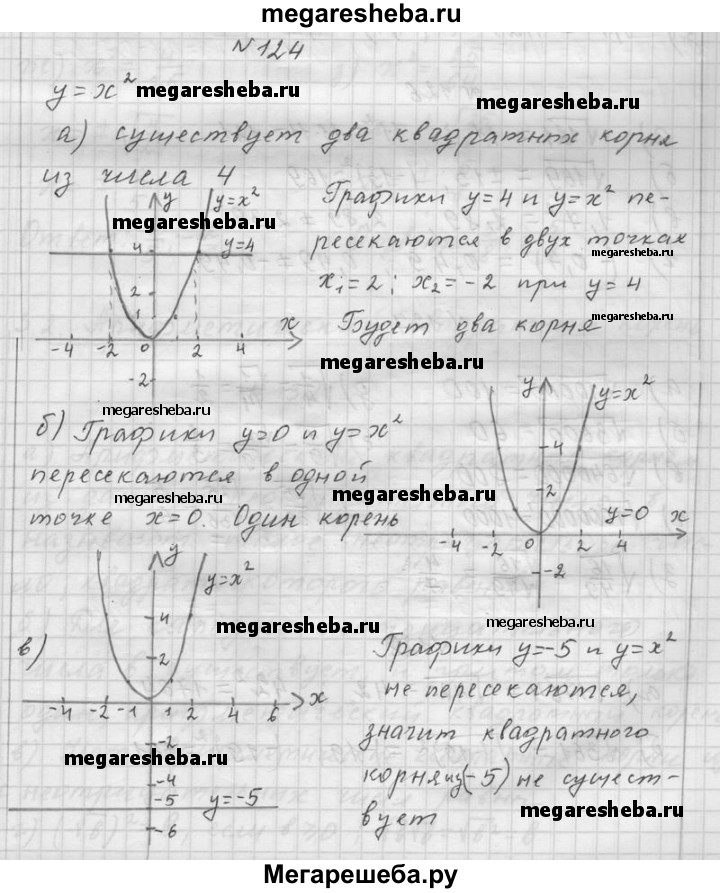 megaresheba.ru
№124
y = x² megaresheba.ru
megaresheba.ru
а) существует два квадратных корня
из числа 4
y
y=x²
megaresheba.ru
4
y=4
2
1
x
-4 -2 0 2 4
-2
Графики y=4 и y=x² пе-
ресекаются в двух точках
megaresheba.ru
x₁=2; x₂=-2 при y=4
Будет два корня
megaresheba.ru
megaresheba.ru
megaresheba.ru
б) Графики y=0 и y=x²
пересекаются в одной
megaresheba.ru
megaresheba.ru
точке x=0. Один корень
y
y=x²
4
2
y=0 x
-4 -2 0 2 4
-2
megaresheba.ru
в)
y
y=x²
4
megaresheba.ru
2
-4 -2 -1 1 2 4 6 x
-2
megaresheba.ru
-4
-5 y=-5
-6
Графики y=-5 и y=x²
не пересекаются,
megaresheba.ru
значит квадратного
корня из(-5) не сущест-
вует
megaresheba.ru
Мегарешеба.ру